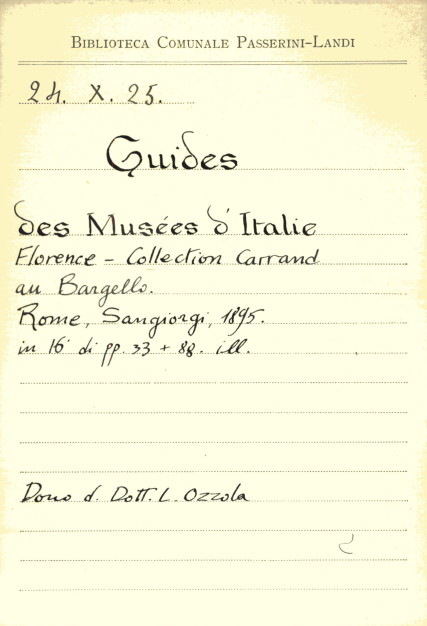 Biblioteca Comunale Passerini-Landi
24. X. 25.
Guides
des Musées d'Italie
Florence - Collection Carrand
au Bargello.
Rome, Sangiorgi, 1895.
in 16° di pp. 33 + 88. ill.
Dono d. Dott. L. Ozzola